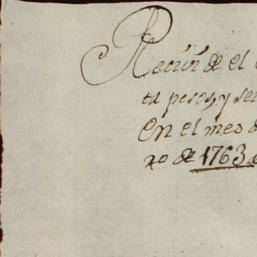 Recivi de el
ta pesos, y se
En el mes d
ro de 1763 a